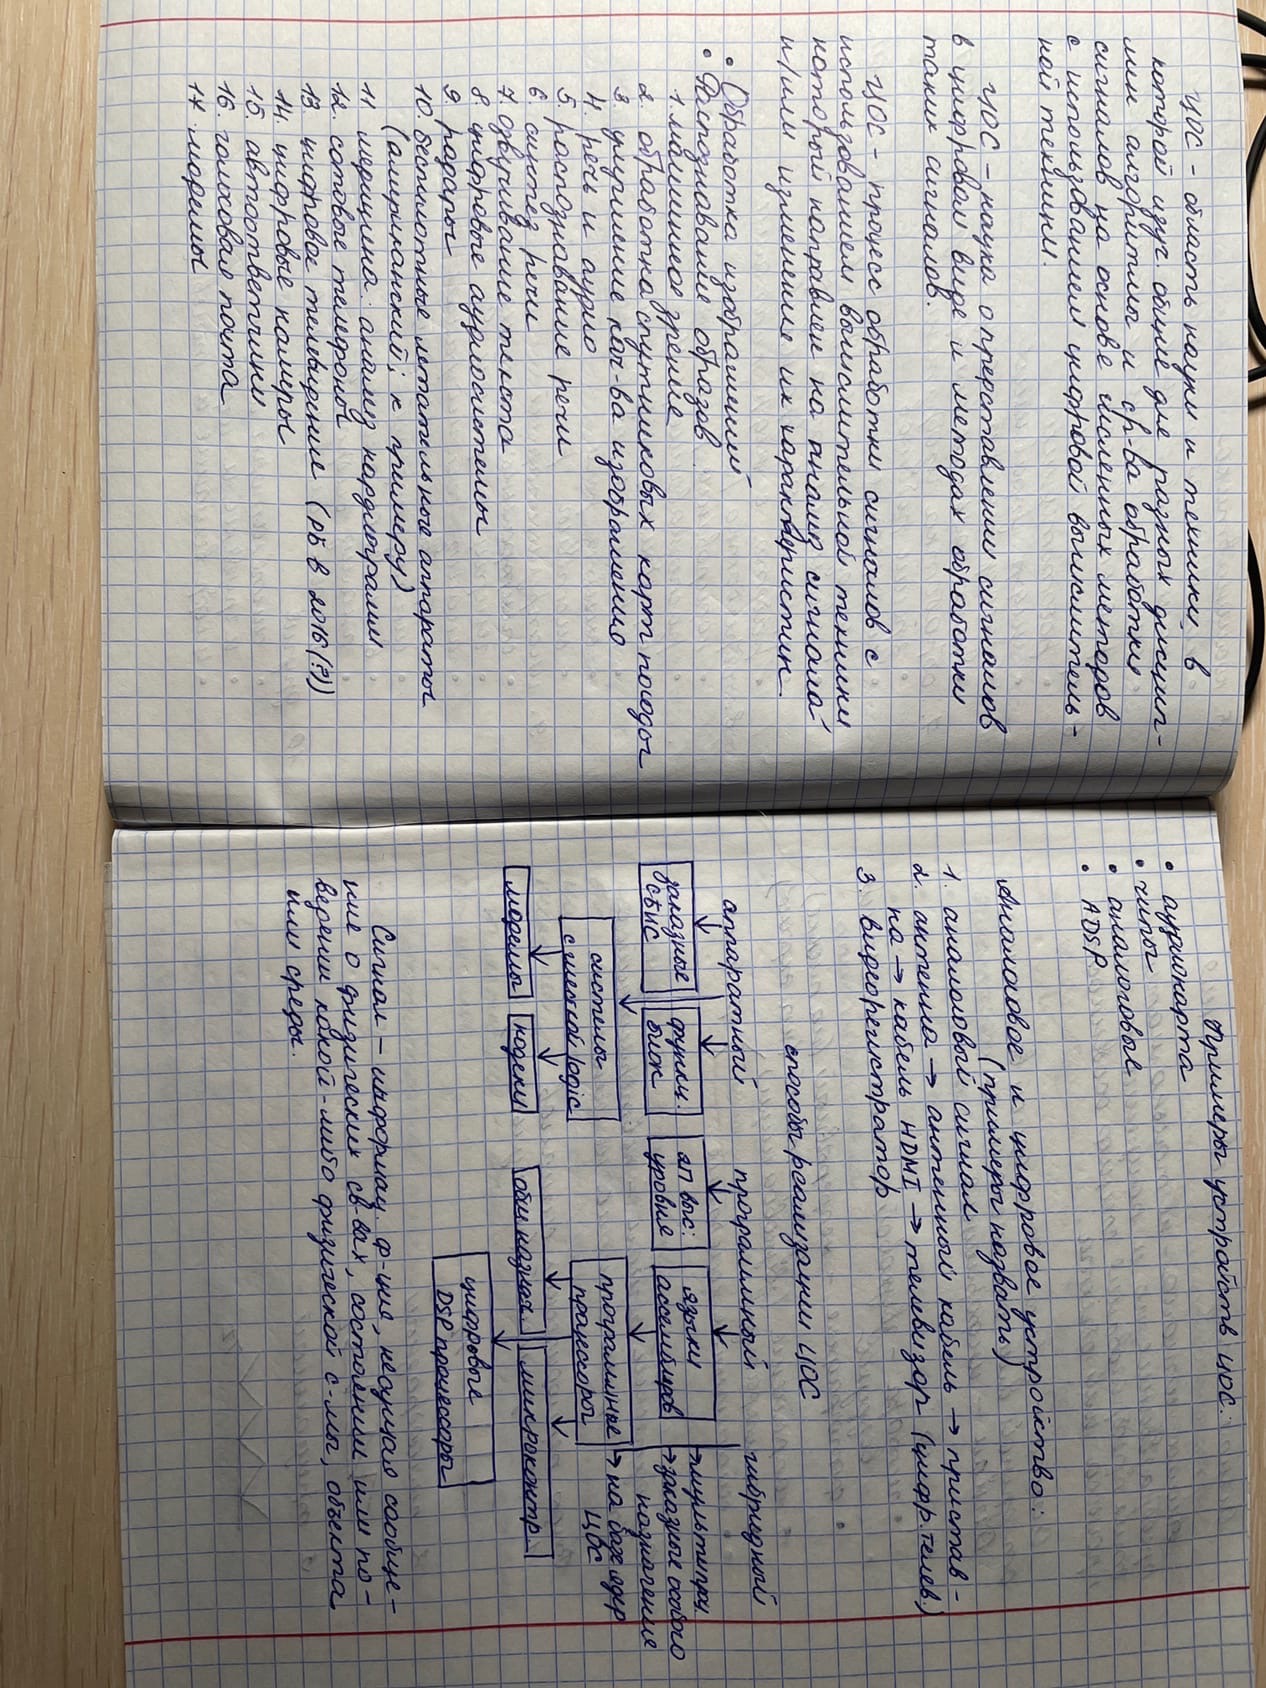 ЦОС - область науки и техники в
которой изуч. общие для разных дисцип-
лин алгоритмы и ср-ва обработки
сигналов на основе численных методов
с использованием цифровой вычислитель-
ной техники.
ЦОС - наука о представлении сигналов
в цифровом виде и методах обработки
таких сигналов.
ЦОС - процесс обработки сигналов с
использованием вычислительной техники
который направлен на анализ сигнала
и/или изменение их характеристик.
• Обработка изображений
• Распознавание образов
1. машинное зрение
2. обработка спутниковых карт погоды
3. улучшение кач-ва изображения
4. речь и аудио
5. распознавание речи
6. синтез речи
7. озвучивание текста
8. цифровые аудиосистемы
9. радары
10. беспилотные летательные аппараты
(американский; к примеру)
11. медицина: анализ кардиограмм
12. сотовые телефоны
13. цифровое телевидение (РБ в 2016(?))
14. цифровые камеры
15. автоответчики
16. голосовая почта
17. модемы
Примеры устройств ЦОС:
• аудиокарта
• чипы
• аналоговые
• ADSP
Аналоговое и цифровое устройство:
(примеры назвать)
1. аналоговый сигнал
2. антенна → антенный кабель → пристав-
ка → кабель HDMI → телевизор (цифр. телев.)
3. видеорегистратор
способы реализации ЦОС
аппаратный программный гибридный
заказные СБИС
функц. блок
ЯП выс. уровня
языки ассемблеров
→ мультипроц
→ заказные особого
назначения
→ на базе ядер
ЦОС
системы
с жесткой logic
программные
процессоры
модемы кодеки общ назнач. микроконтр.
цифровые
DSP процессоры
Сигнал - информац. ф-ция, несущая сообще-
ние о физических св-вах, состоянии или по-
ведении какой-либо физической с-мы, объекта
или среды.